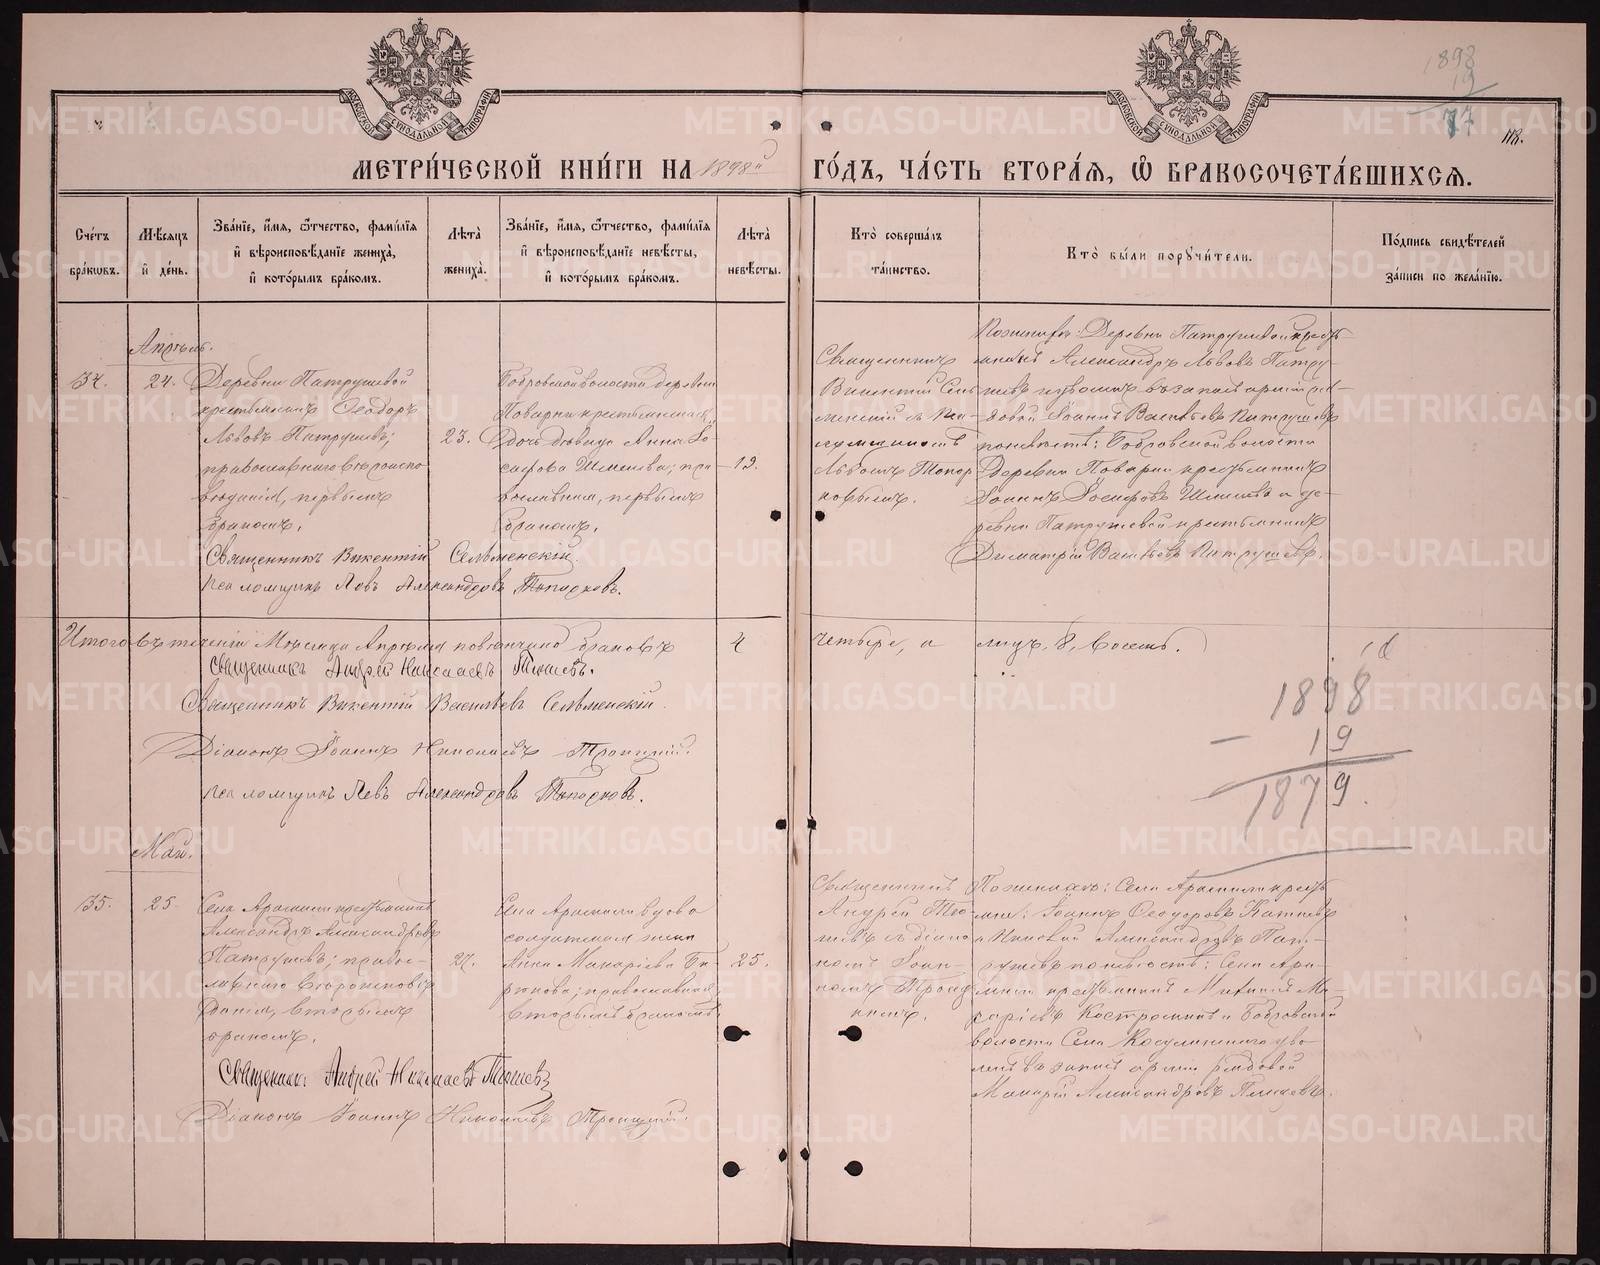 1898
19
77
118.
МОСКОВСКОЙ СѴНОДАЛЬНОЙ ТИПОГРАФІИ
МОСКОВСКОЙ СѴНОДАЛЬНОЙ ТИПОГРАФІИ
МЕТРИ́ЧЕСКОЙ КНИ́ГИ НА 1898й ГО́ДЪ, ЧА́СТЬ ВТОРА́Я, Ѡ҆ БРАКОСОЧЕТА́ВШИХСЯ.
Сче́тъ бра́кѡвъ.
Мѣ́сяцъ и҆ де́нь.
Зва́нїе, и҆́мя, ѻ҆́тчество, фами́лїя и҆ вѣроисповѣ́данїе жениха̀, и҆ кото́рымъ бра́комъ.
Лѣ́та̀ жениха̀.
Зва́нїе, и҆́мя, ѻ҆́тчество, фами́лїя и҆ вѣроисповѣ́данїе невѣ́сты, и҆ кото́рымъ бра́комъ.
Лѣ́та̀ невѣ́сты.
Кто̀ соверша́лъ та́инство.
Кто̀ бы́ли порꙋчи́тели.
По́дпись свидѣ́телей за́писи по жела́нїю.
Апрѣль.
34.
24.
Деревни Патрушевой
крестьянинъ Ѳеодоръ
Львовъ Патрушевъ;
православнаго вѣроиспо-
вѣданія, первымъ
бракомъ.
23.
Бобровской волости деревни
Поварни крестьянская
дочь дѣвица Анна Іо-
сифова; пра-
вославная, первымъ
бракомъ.
19.
Священникъ
Викентій Сель-
менскій съ Пса-
ломщикомъ
Львомъ Топор
ковымъ.
Деревни Патрушевой кресть-
янинъ Александръ Львовъ Патру-
шевъ и въ запасъ арміи ря-
довой Іоаннъ Васильевъ Патрушевъ
по невѣстѣ: Бобровской волости
Деревни Поварни крестьянинъ
Іоаннъ Іосифовъ и де-
ревни Патрушевой крестьянинъ
Димитрій Васильевъ Патрушевъ.
Священникъ Викентій Сельменскій.
Псаломщикъ Левъ Александровъ Топорковъ.
Итого въ теченіи Мѣсяца Апрѣля повѣнчано браковъ 4 четыре, а лицъ 8, восемь.
Священникъ Андрей Николаевъ
Священникъ Викентій Васильевъ Сельменскій.
Діаконъ Іоаннъ Николаевъ Троицкій.
Псаломщикъ Левъ Александровъ Топорковъ.
1898
- 19
1879.
Май.
35.
25.
Села Арамили крестьянинъ
Александръ Александровъ
Патрушевъ; правос-
лавнаго вѣроисповѣ-
данія, вторымъ
бракомъ.
27.
Села Арамили вдова
солдатская жена
Анна Макаріева Би-
рюкова; православная,
вторымъ бракомъ.
25.
Священникъ
Андрей
съ діако-
номъ Іоан-
номъ Троиц-
кимъ.
По женихѣ: Села Арамили кресть-
яне: Іоаннъ Ѳеодоровъ
и Александровъ Пат-
рушевъ по невѣстѣ: Села Ара-
мили крестьянинъ Ма-
каріевъ Костроминъ и Бобровской
волости Села Косулинскаго уво-
лен. въ запасъ арміи рядовой
Макарій Александровъ
Священникъ Андрей Николаевъ
Діаконъ Іоаннъ Николаевъ Троицкій.
METRIKI.GASO-URAL.RU